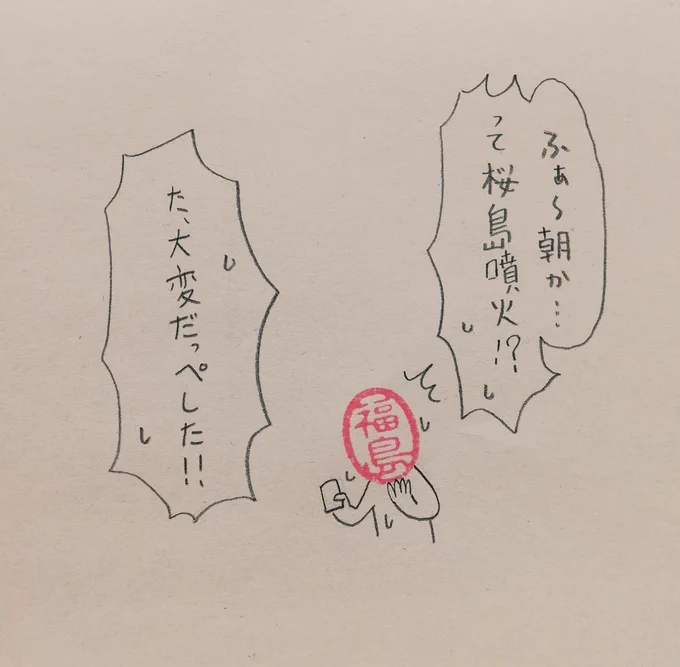 ふぁ〜朝か…
って桜島噴火!?
た、大変だっぺした!!
福島